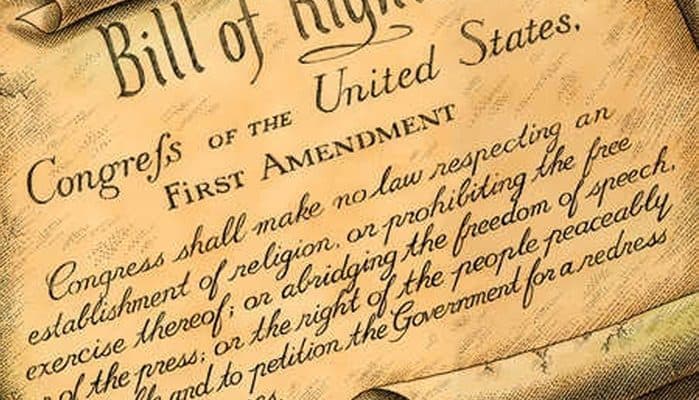 Bill of Right
Congreſs OF THE United States,
FIRST AMENDMENT
Congress shall make no law respecting an
establishment of religion, or prohibiting the free
exercise thereof; or abridging the freedom of speech,
of the press; or the right of the people peaceably
and to petition the Government for a redress